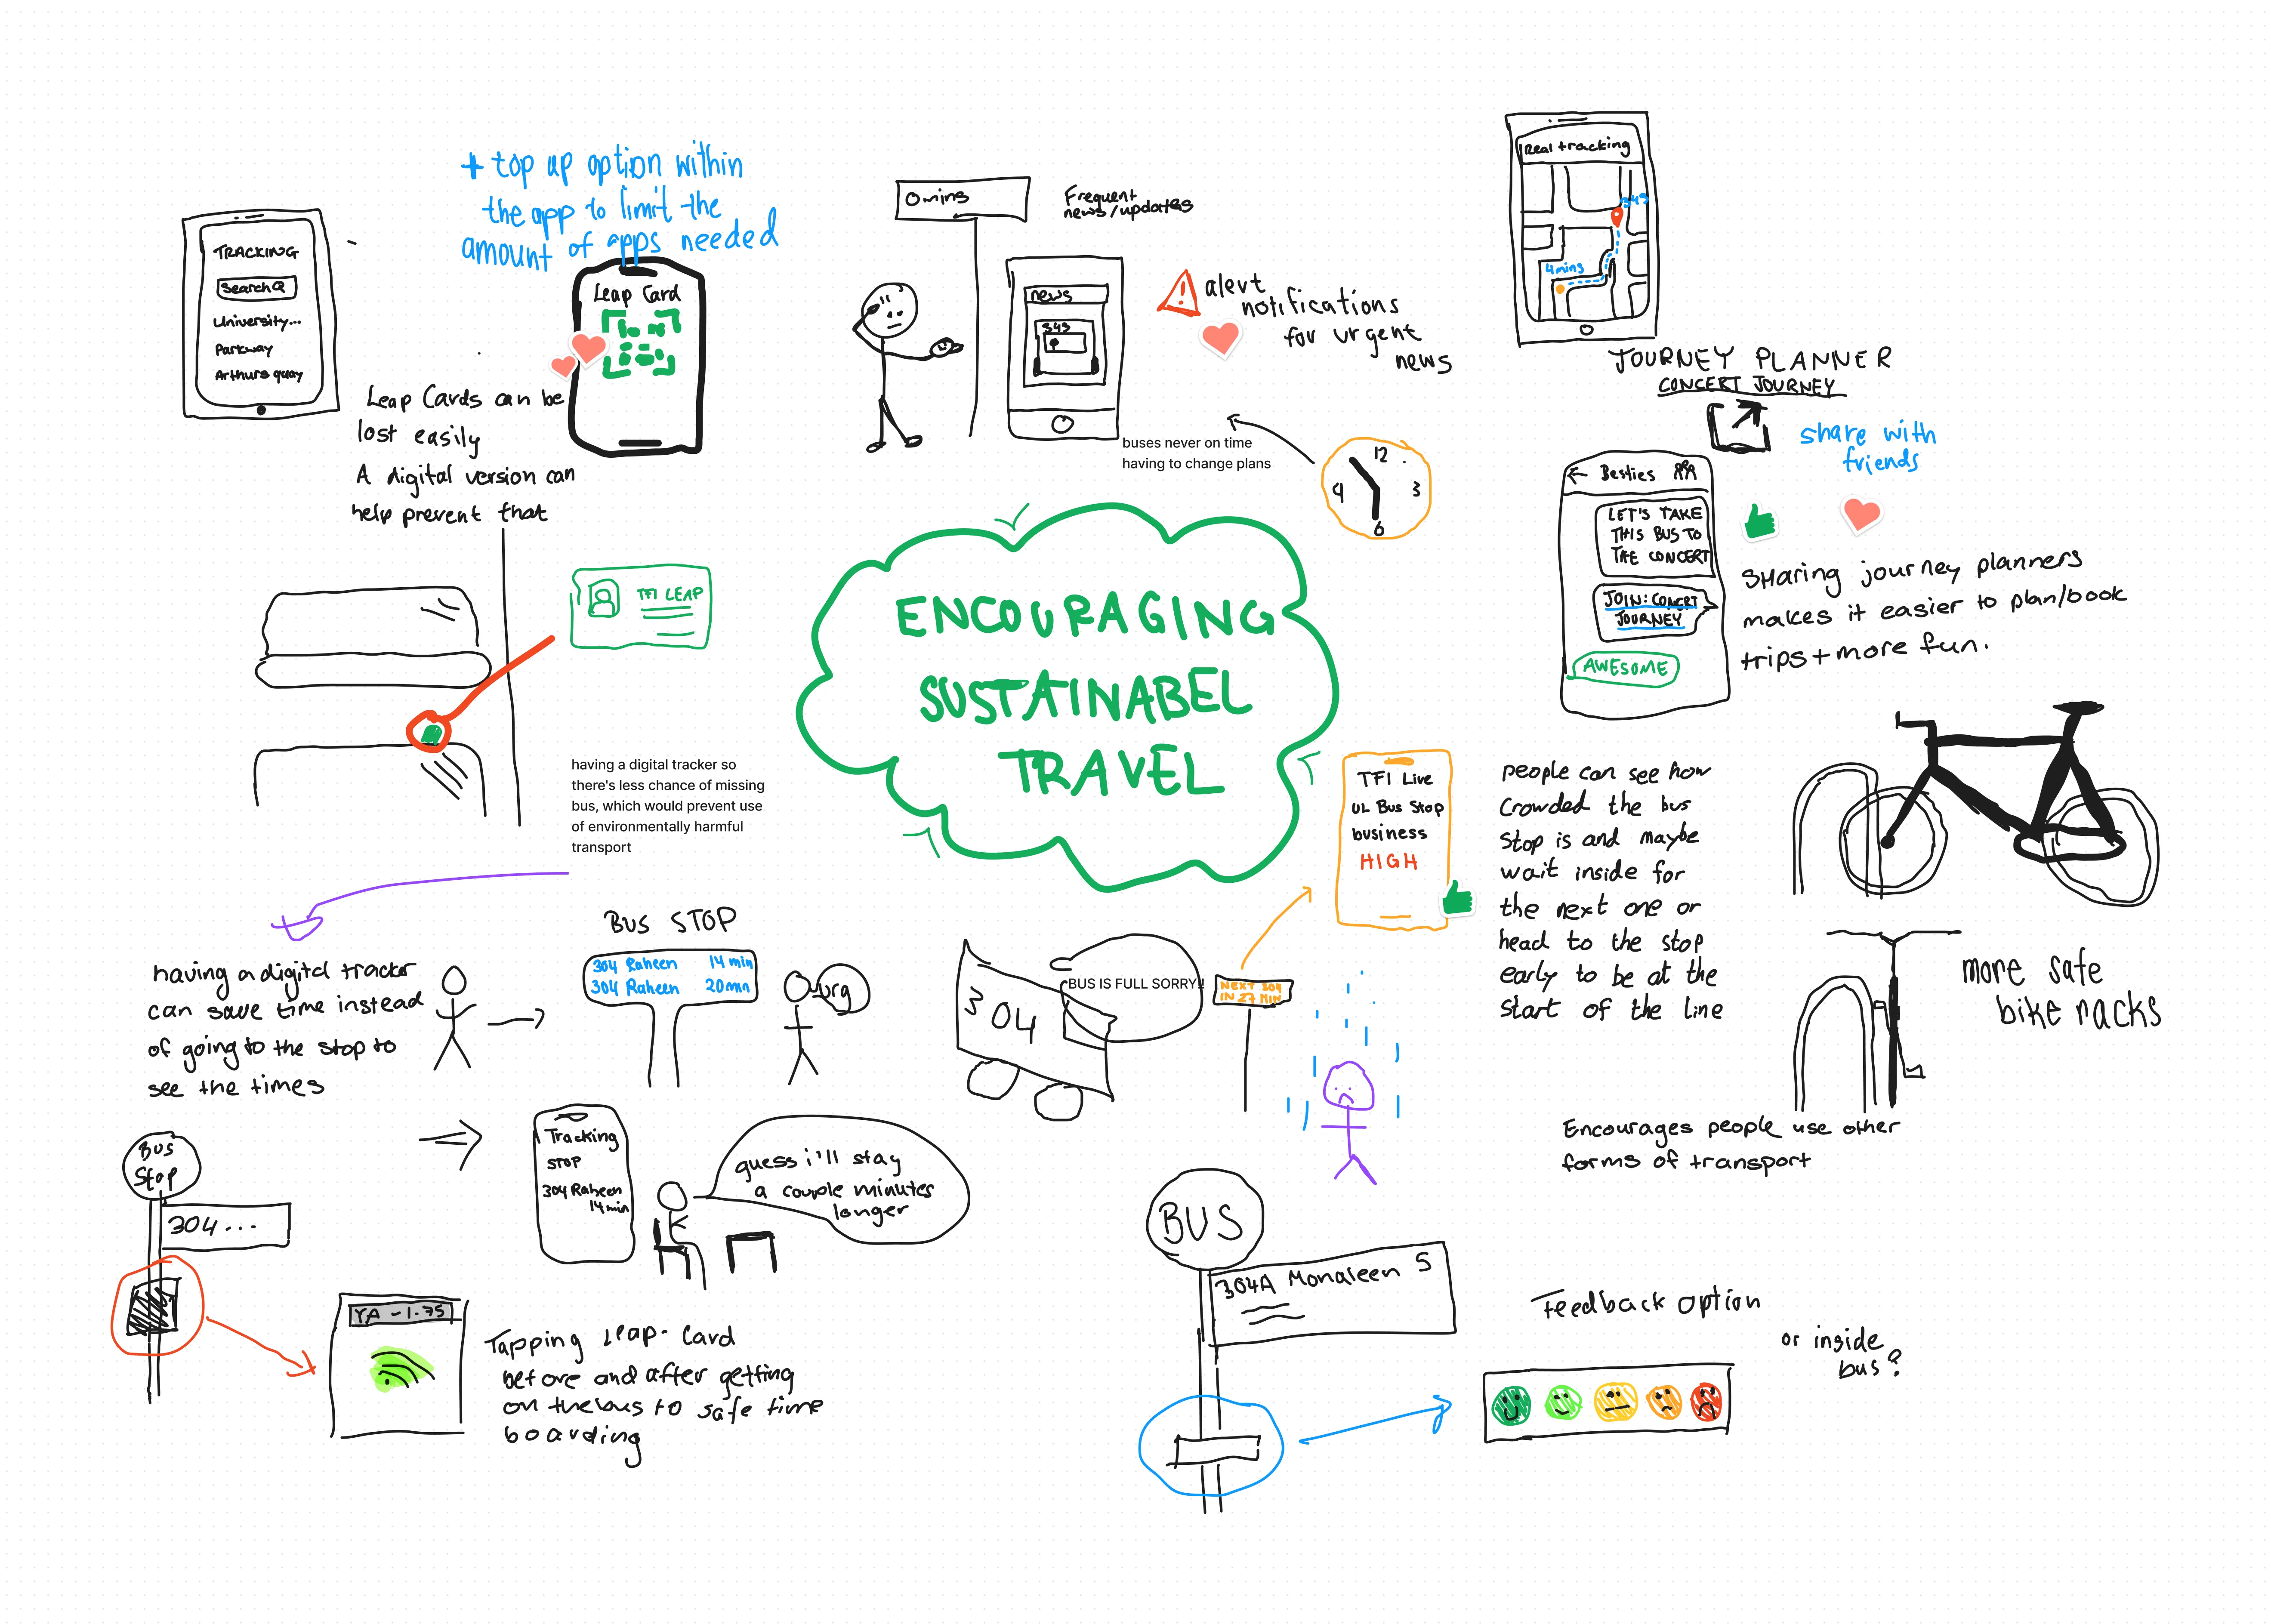 TRACKING
Search
University...
Parkway
Arthurs quay
+ top up option within
the app to limit the
amount of apps needed
Leap Card
Leap Cards can be
lost easily
A digital version can
help prevent that
TFI LEAP
0 mins
Frequent
news/updates
news
343
alert
notifications
for urgent
news
buses never on time
having to change plans
12
3
6
4
Real tracking
343
4mins
JOURNEY PLANNER
CONCERT JOURNEY
share with
friends
Besties
LET'S TAKE
THIS BUS TO
THE CONCERT
JOIN: CONCERT
JOURNEY
AWESOME
SHaring journey planners
makes it easier to plan/book
trips + more fun.
ENCOURAGING
SUSTAINABEL
TRAVEL
having a digital tracker so
there's less chance of missing
bus, which would prevent use
of environmentally harmful
transport
TFI Live
UL Bus Stop
business
HIGH
people can see how
crowded the bus
stop is and maybe
wait inside for
the next one or
head to the stop
early to be at the
start of the line
more safe
bike racks
Encourages people use other
forms of transport
having a digital tracker
can save time instead
of going to the stop to
see the times
BUS STOP
304 Raheen 14 min
304 Raheen 20min
urg
304
BUS IS FULL SORRY!!
NEXT 304
IN 27 MIN
Tracking
STOP
304 Raheen
14 min
guess i'll stay
a couple minutes
longer
Bus
Stop
304...
YA -1.75
Tapping Leap-Card
before and after getting
on the bus to safe time
boarding
BUS
304A Monaleen 5
Feedback option
or inside
bus?